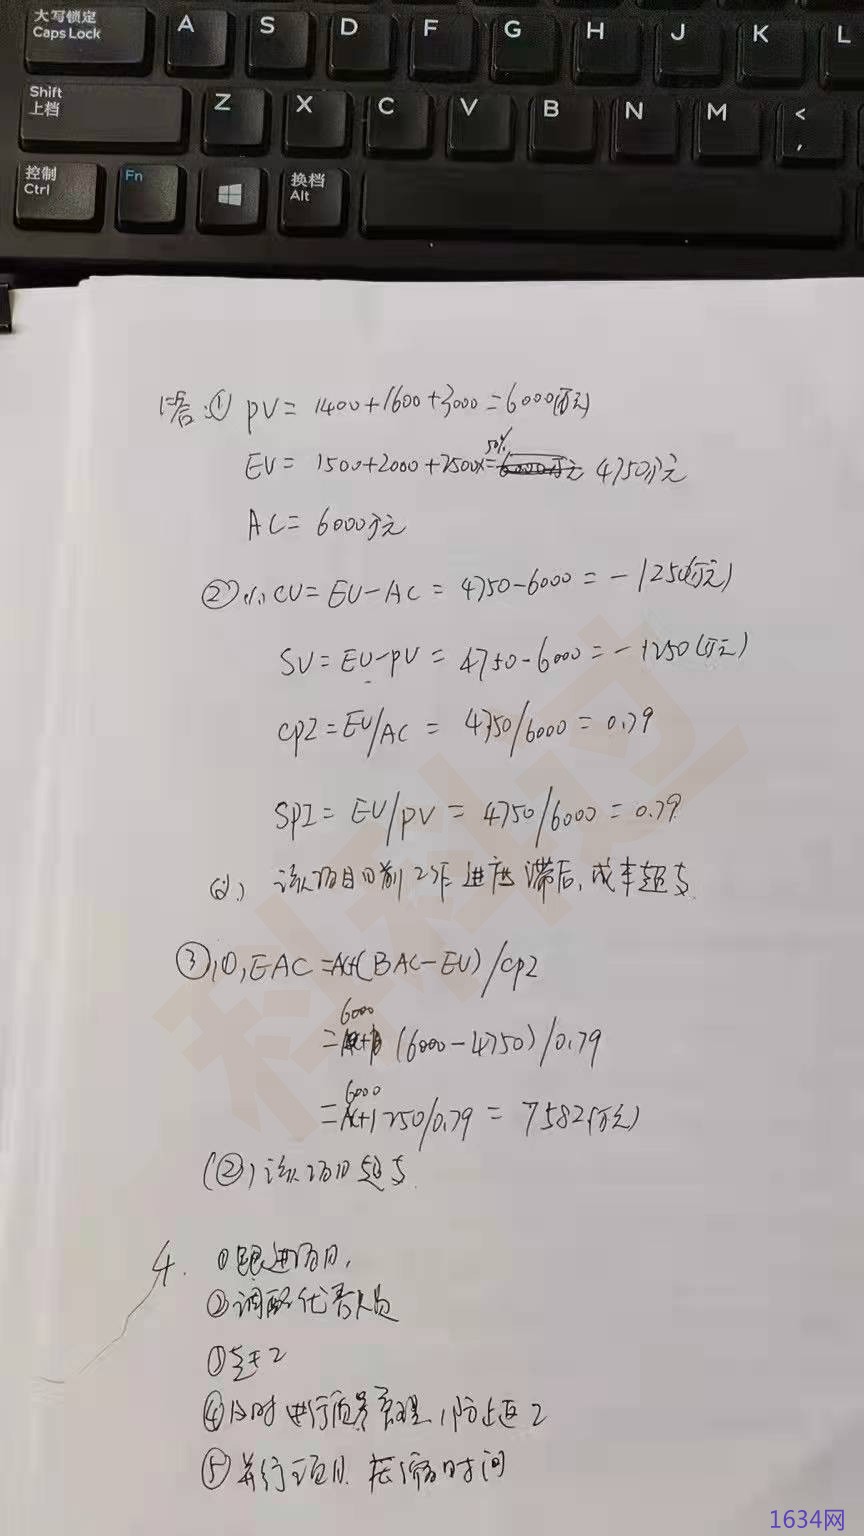 大写锁定
Caps Lock
A S D F G H J K L
Shift
上档
Z X C V B N M < ,
控制
Ctrl
Fn
换档
Alt
答:① PV= 1400+1600+3000=6000(万元)
50%
EV= 1500+2000+2500×= 4750万元
AC= 6000万元
②(1) CV= EV-AC = 4750-6000 = -1250(万元)
SV= EV-PV = 4750-6000 = -1250(万元)
CPI=EV/AC = 4750/6000 = 0.79
SPI= EV/PV = 4750/6000 = 0.79
(2) 该项目目前工作进度滞后,成本超支.
③(1) EAC =AC+(BAC-EV)/CPI
6000
= (6000-4750)/0.79
6000
= +1250/0.79 = 7582(万元)
(②)该项目超支.
4. ①跟进项目,
②调配优秀人员
③赶工
④及时进行质量管理,防止返工
⑤并行项目,压缩时间
科科过
1634网